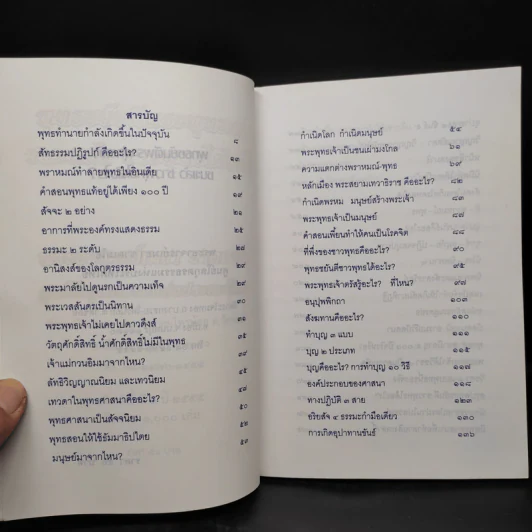 สารบัญ
พุทธทำนายกำลังเกิดขึ้นในปัจจุบัน ๘
สัทธรรมปฏิรูปก์ คืออะไร? ๑๓
พราหมณ์ทำลายพุทธในอินเดีย ๑๕
คำสอนพุทธแท้อยู่ได้เพียง ๑๐๐ ปี ๑๙
สัจจะ ๒ อย่าง ๒๑
อาการที่พระองค์ทรงแสดงธรรม ๒๕
ธรรมะ ๒ ระดับ ๒๗
อานิสงส์ของโลกุตรธรรม ๒๙
พระมาลัยไปดูนรกเป็นความเท็จ ๒๙
พระเวสสันดรเป็นนิทาน
พระพุทธเจ้าไม่เคยไปดาวดึงส์
วัตถุศักดิ์สิทธิ์ น้ำศักดิ์สิทธิ์ไม่มีในพุทธ
เจ้าแม่กวนอิมมาจากไหน? ๓๙
ลัทธิวิญญาณนิยม และเทวนิยม ๔๕
เทวดาในพุทธศาสนาคืออะไร? ๔๗
พุทธศาสนาเป็นสัจจนิยม ๕๐
พุทธสอนให้ใช้ธัมมาธิปไตย ๕๒
มนุษย์มาจากไหน? ๕๓
กำเนิดโลก กำเนิดมนุษย์ ๕๔
พระพุทธเจ้าเป็นชนเผ่ามงโกล ๖๑
ความแตกต่างพราหมณ์-พุทธ ๖๙
หลักเมือง พระสยามเทวาธิราช คืออะไร? ๘๒
กำเนิดพรหม มนุษย์สร้างพระเจ้า ๘๓
พระพุทธเจ้าเป็นมนุษย์ ๘๗
คำสอนเพี้ยนทำให้คนเป็นโรคจิต ๘๘
ที่พึ่งของชาวพุทธคืออะไร? ๙๐
พุทธขยันตีชาวพุทธได้อะไร? ๙๕
พระพุทธเจ้าตรัสรู้อะไร? ที่ไหน? ๙๗
อนุปุพพิกถา ๑๐๓
สังฆทานคืออะไร? ๑๑๐
ทำบุญ ๓ แบบ ๑๑๑
บุญ ๒ ประเภท ๑๑๕
บุญคืออะไร? การทำบุญ ๑๐ วิธี ๑๑๗
องค์ประกอบของศาสนา ๑๑๘
ทางปฏิบัติ ๓ สาย ๑๒๓
อริยสัจ ๔ ธรรมะกำมือเดียว ๑๓๐
การเกิดอุปาทานขันธ์ ๑๓๖